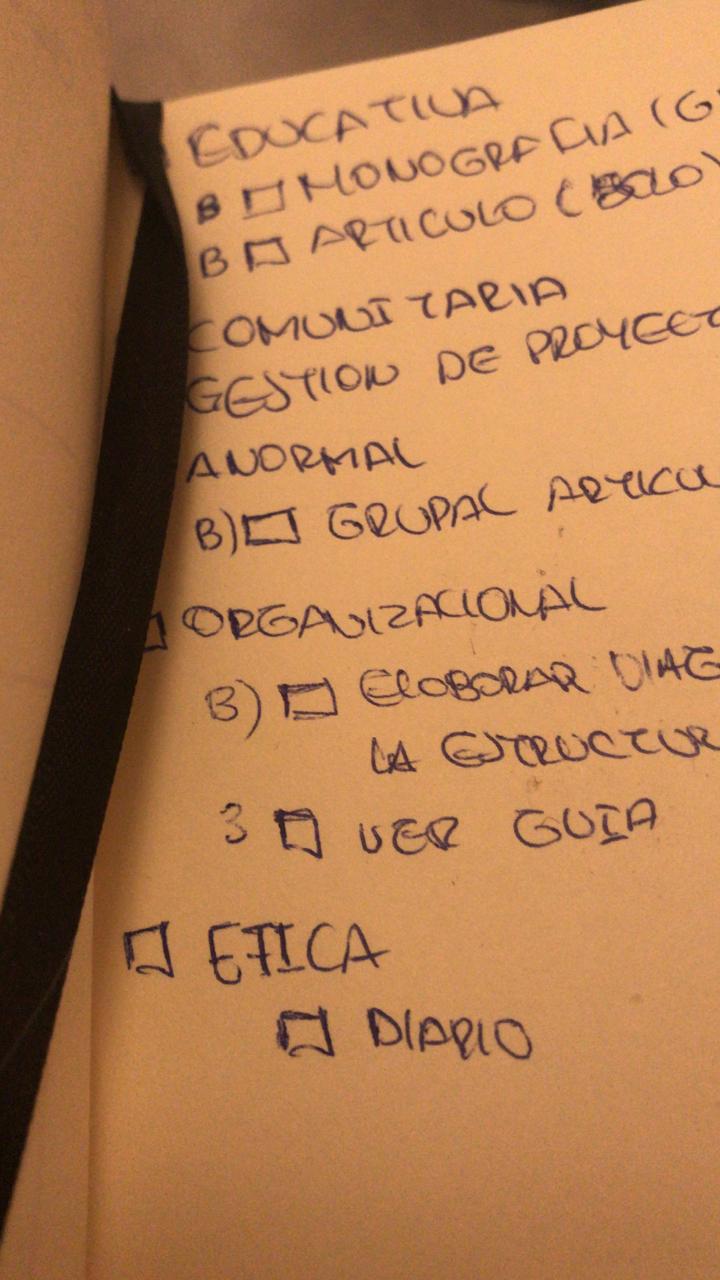 EDUCATIVA
B □ MONOGRAFIA (G
B □ ARTICULO (SOLO)
COMUNITARIA
GESTION DE PROYECT
ANORMAL
B) □ GRUPAL ARTICUL
□ ORGANIZACIONAL
B) □ ELOBORAR DIAG
LA ESTRUCTUR
3 □ VER GUIA
□ ETICA
□ DIARIO